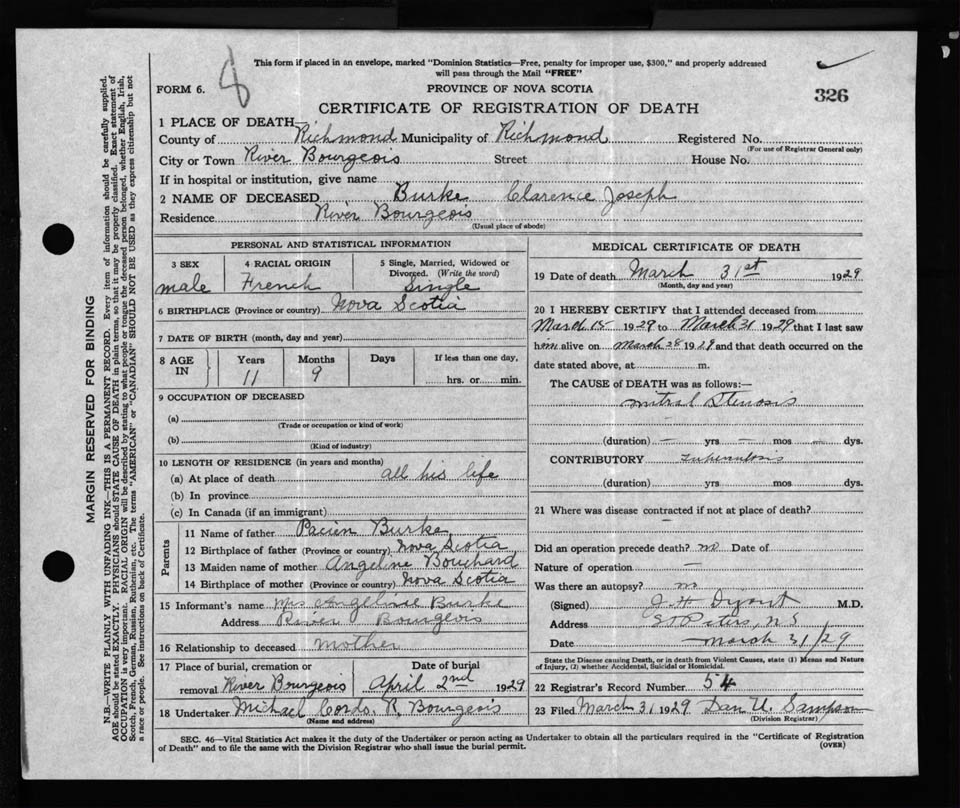 This form if placed in an envelope, marked "Dominion Statistics—Free, penalty for improper use, $300," and properly addressed
will pass through the Mail "FREE"
FORM 6.
8
PROVINCE OF NOVA SCOTIA
326
CERTIFICATE OF REGISTRATION OF DEATH
1 PLACE OF DEATH
County of Richmond Municipality of Richmond Registered No.
(For use of Registrar General only)
City or Town River Bourgeois Street House No.
If in hospital or institution, give name
2 NAME OF DECEASED Burke Clarence Joseph
Residence River Bourgeois
(Usual place of abode)
PERSONAL AND STATISTICAL INFORMATION
3 SEX 4 RACIAL ORIGIN 5 Single, Married, Widowed or
Divorced. (Write the word)
male French Single
6 BIRTHPLACE (Province or country) Nova Scotia
7 DATE OF BIRTH (month, day and year)
8 AGE IN Years Months Days If less than one day,
11 9 hrs. or min.
9 OCCUPATION OF DECEASED
(a)
(Trade or occupation or kind of work)
(b)
(Kind of industry)
10 LENGTH OF RESIDENCE (in years and months)
(a) At place of death all his life
(b) In province
(c) In Canada (if an immigrant)
Parents
11 Name of father Pacien Burke
12 Birthplace of father (Province or country) Nova Scotia
13 Maiden name of mother Angeline Bouchard
14 Birthplace of mother (Province or country) Nova Scotia
15 Informant's name Mrs Angeline Burke
Address River Bourgeois
16 Relationship to deceased mother
17 Place of burial, cremation or Date of burial
removal River Bourgeois April 2nd 1929
18 Undertaker Michael Cordo. R. Bourgeois
(Name and address)
MEDICAL CERTIFICATE OF DEATH
19 Date of death March 31st 1929
(Month, day and year)
20 I HEREBY CERTIFY that I attended deceased from
March 15 1929 to March 31 1929 that I last saw
him alive on March 28 1929 and that death occurred on the
date stated above, at m.
The CAUSE of DEATH was as follows:—
Mitral Stenosis
(duration) — yrs — mos — dys.
CONTRIBUTORY Tuberculosis
(duration) yrs. mos. dys.
21 Where was disease contracted if not at place of death?
Did an operation precede death? no Date of
Nature of operation —
Was there an autopsy? no
(Signed) J. H. M.D.
Address St Peters, N.S
Date March 31/29
State the Disease causing Death, or in death from Violent Causes, state (1) Means and Nature
of Injury, (2) whether Accidental, Suicidal or Homicidal.
22 Registrar's Record Number 54
23 Filed March 31 1929 Dan U. Sampson
(Division Registrar)
SEC. 46—Vital Statistics Act makes it the duty of the Undertaker or person acting as Undertaker to obtain all the particulars required in the "Certificate of Registration
of Death" and to file the same with the Division Registrar who shall issue the burial permit.
(OVER)
MARGIN RESERVED FOR BINDING
N.B.—WRITE PLAINLY WITH UNFADING INK—THIS IS A PERMANENT RECORD. Every item of information should be carefully supplied.
AGE should be stated EXACTLY. PHYSICIANS should STATE CAUSE OF DEATH in plain terms, so that it may be properly classified. Exact statement of
OCCUPATION is very important. RACIAL ORIGIN will be described by stating to what people or tongue the deceased person belonged, whether English, Irish,
Scotch, French, German, Russian, Ruthenian, etc. The terms "AMERICAN" or "CANADIAN" SHOULD NOT BE USED as they express citizenship but not
a race or people. See instructions on back of Certificate.